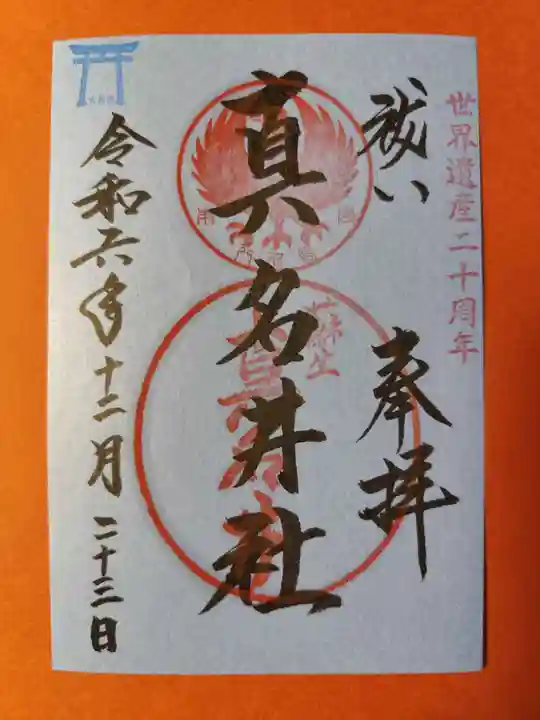 世界遺産二十周年
祓い
奉拝
真名井社
蘇生
令和六年十二月二十三日